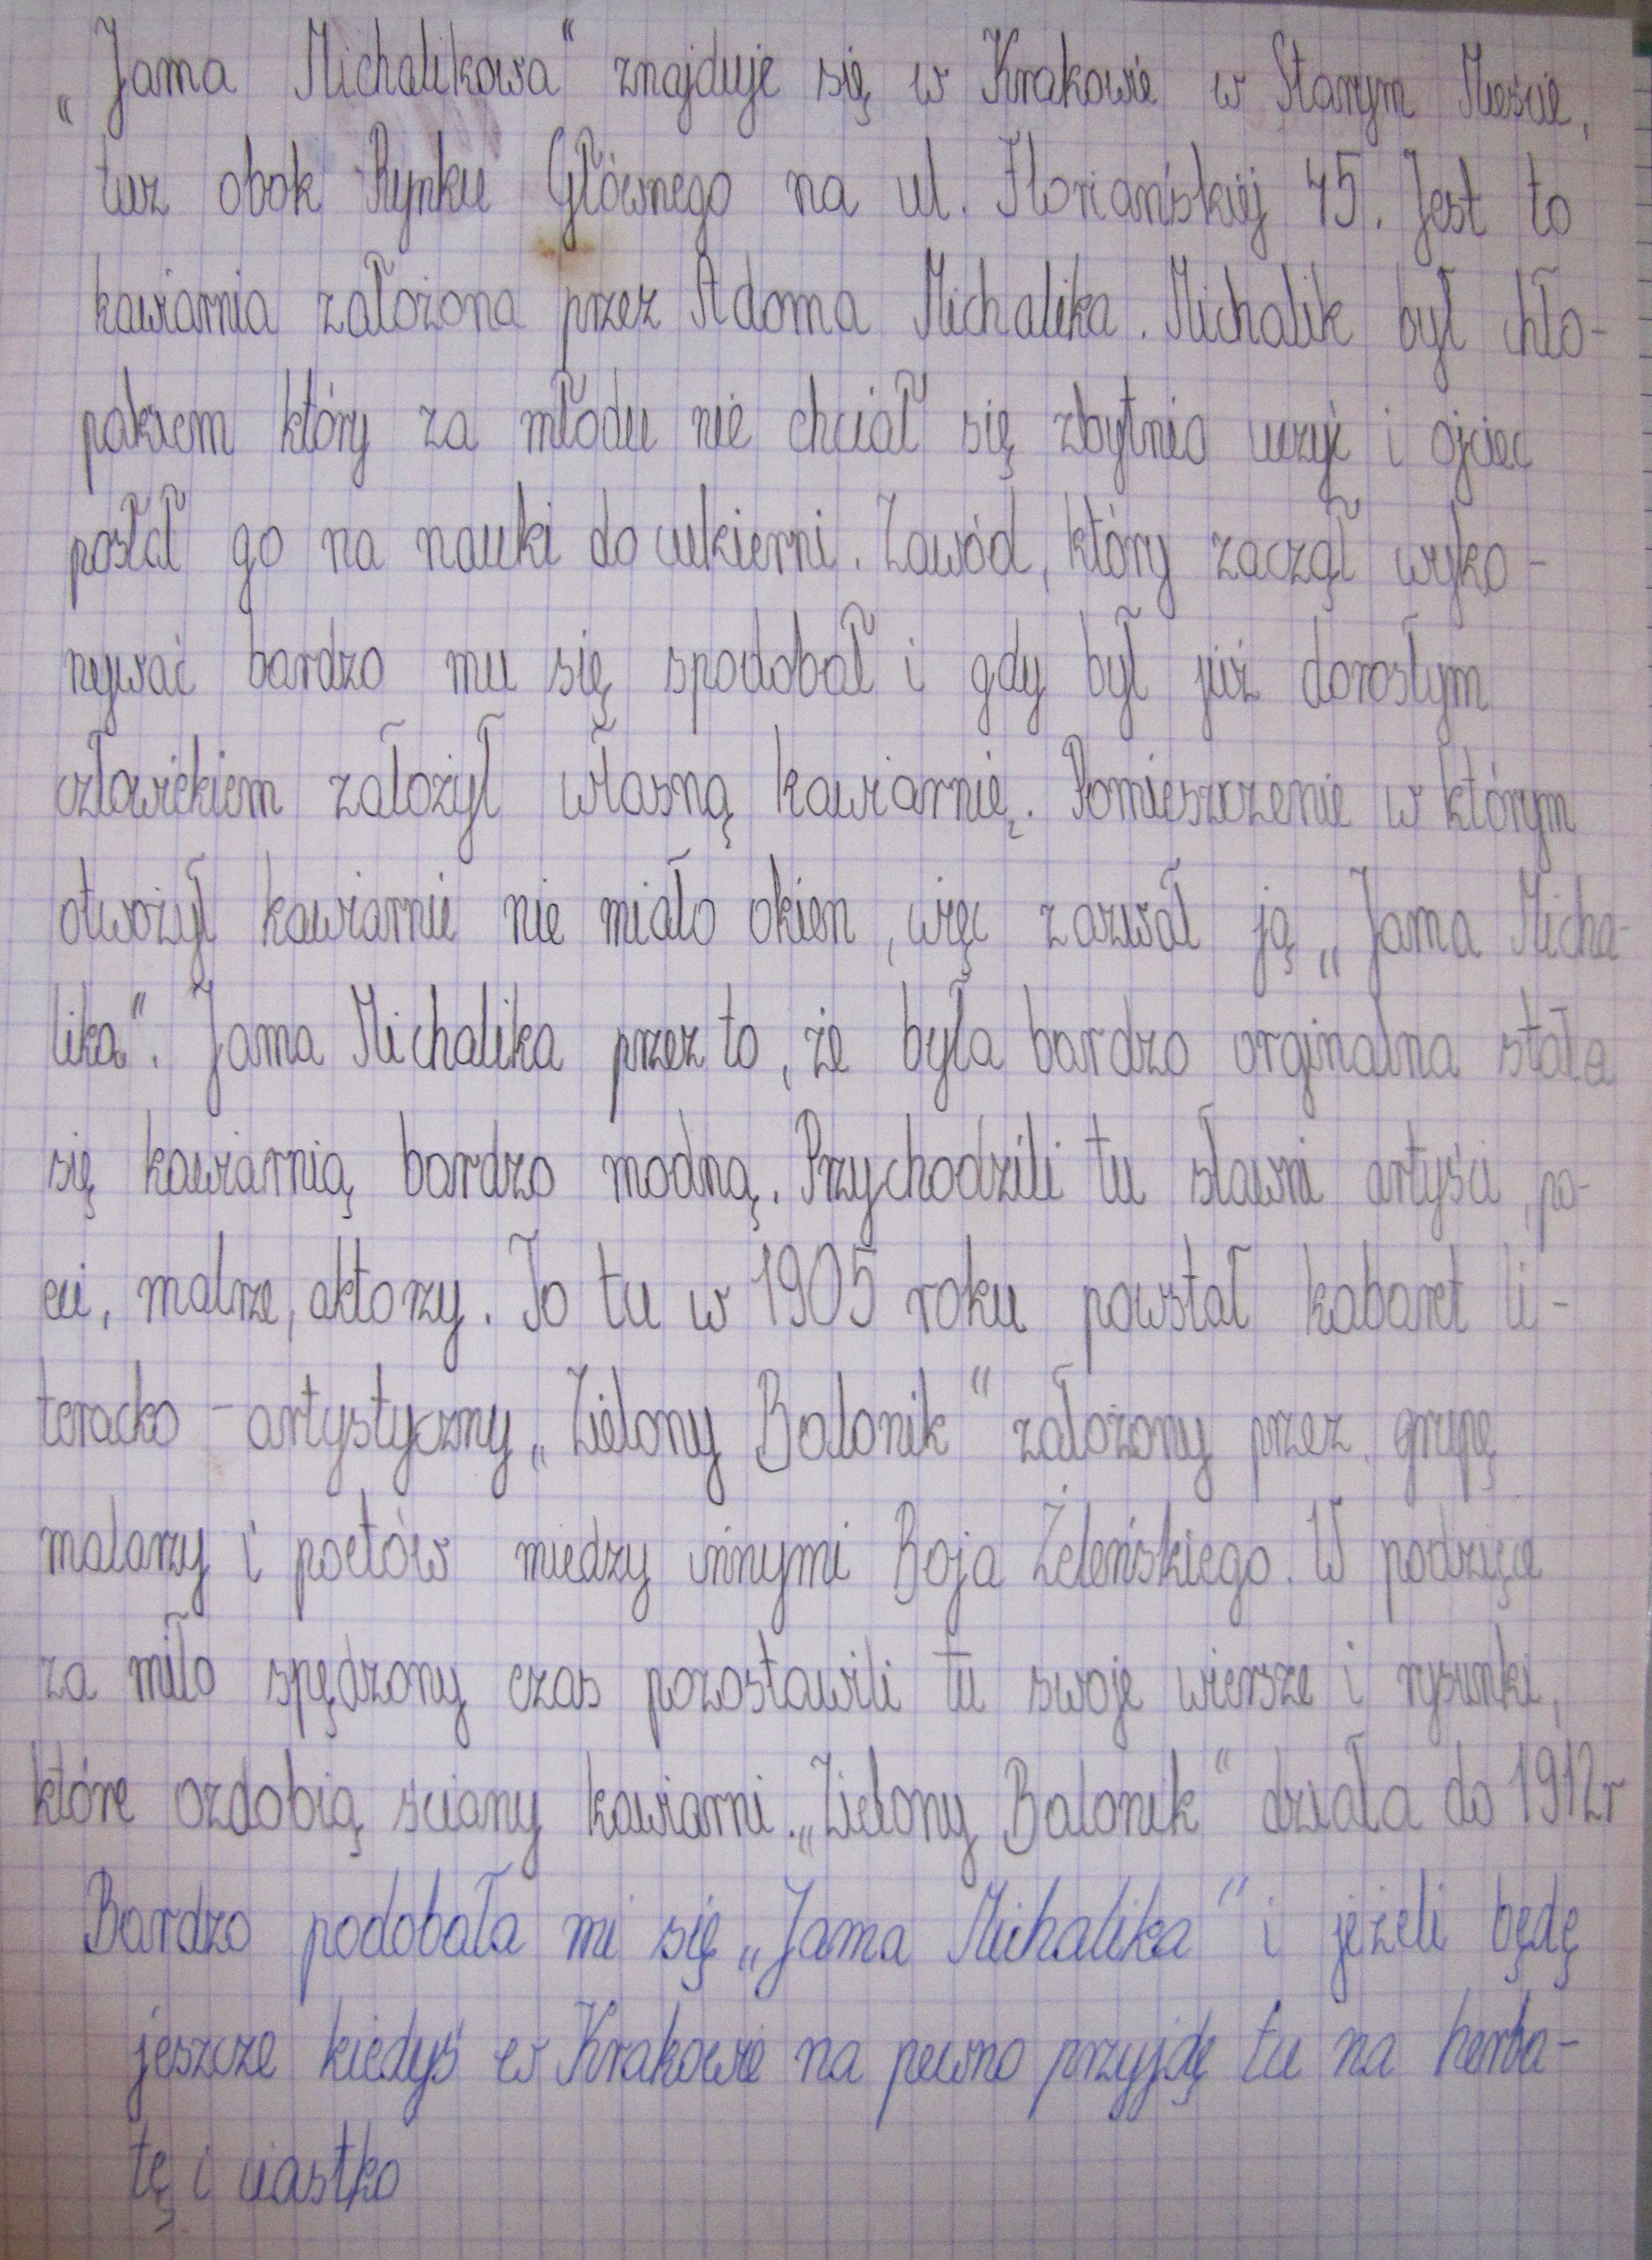 „Jama Michalikowa" znajduje się w Krakowie w Starym Mieście,
tuz obok Rynku Głównego na ul. Floriańskiej 45. Jest to
kawiarnia założona przez Adama Michalika. Michalik był chło-
pakiem który za młodu nie chciał się zbytnio uczyć i ojciec
posłał go na nauki do cukierni. Zawód, który zaczął wyko-
nywać bardzo mu się spodobał i gdy był już dorosłym
człowiekiem założył własną kawiarnię. Pomieszczenie w którym
otwożył kawiarnie nie miało okien, więc zazwał ją „Jama Micha-
lika". Jama Michalika przez to, że była bardzo orginalna stała
się kawiarnią bardzo modną. Przychodzili tu sławni artyści, po-
eci, malrze, aktorzy. To tu w 1905 roku powstał kabaret li-
teracko - artystyczny „Zielony Balonik" założony przez grupę
malarzy i poetów miedzy innymi Boja Żeleńskiego. W podzięce
za miło spędzony czas pozostawili tu swoje wiersze i rysunki,
które ozdobią ściany kawiarni. „Zielony Balonik" działa do 1912r
Bardzo podobała mi się „Jama Michalika" i jeżeli będę
jeszcze kiedyś w Krakowie na pewno przyjdę tu na herba-
tę i ciastko